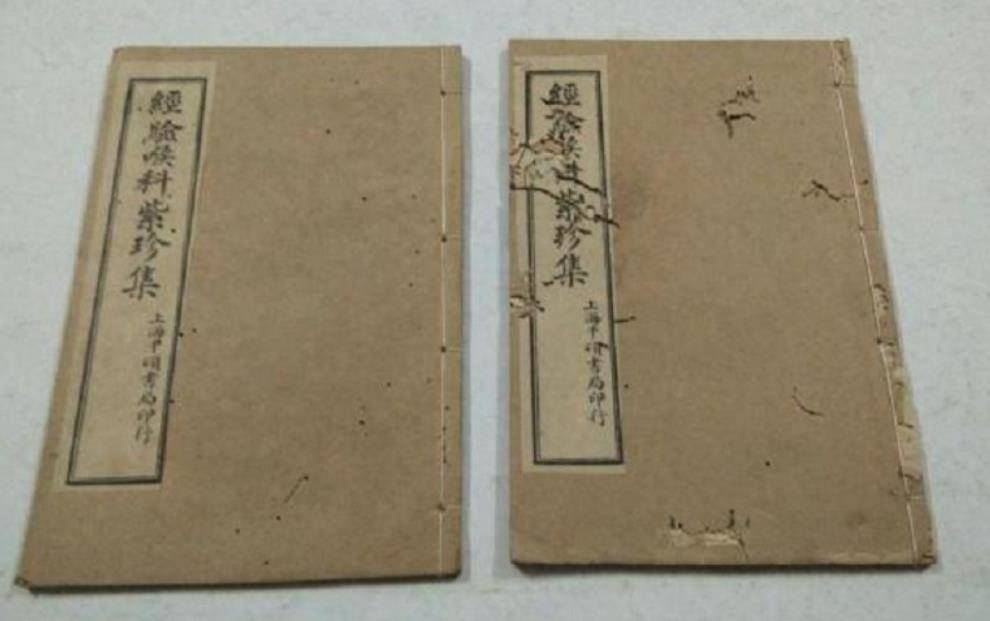 經驗喉科紫珍集
上海千頃書局印行
經驗喉紫珍集
上海千頃書局印行